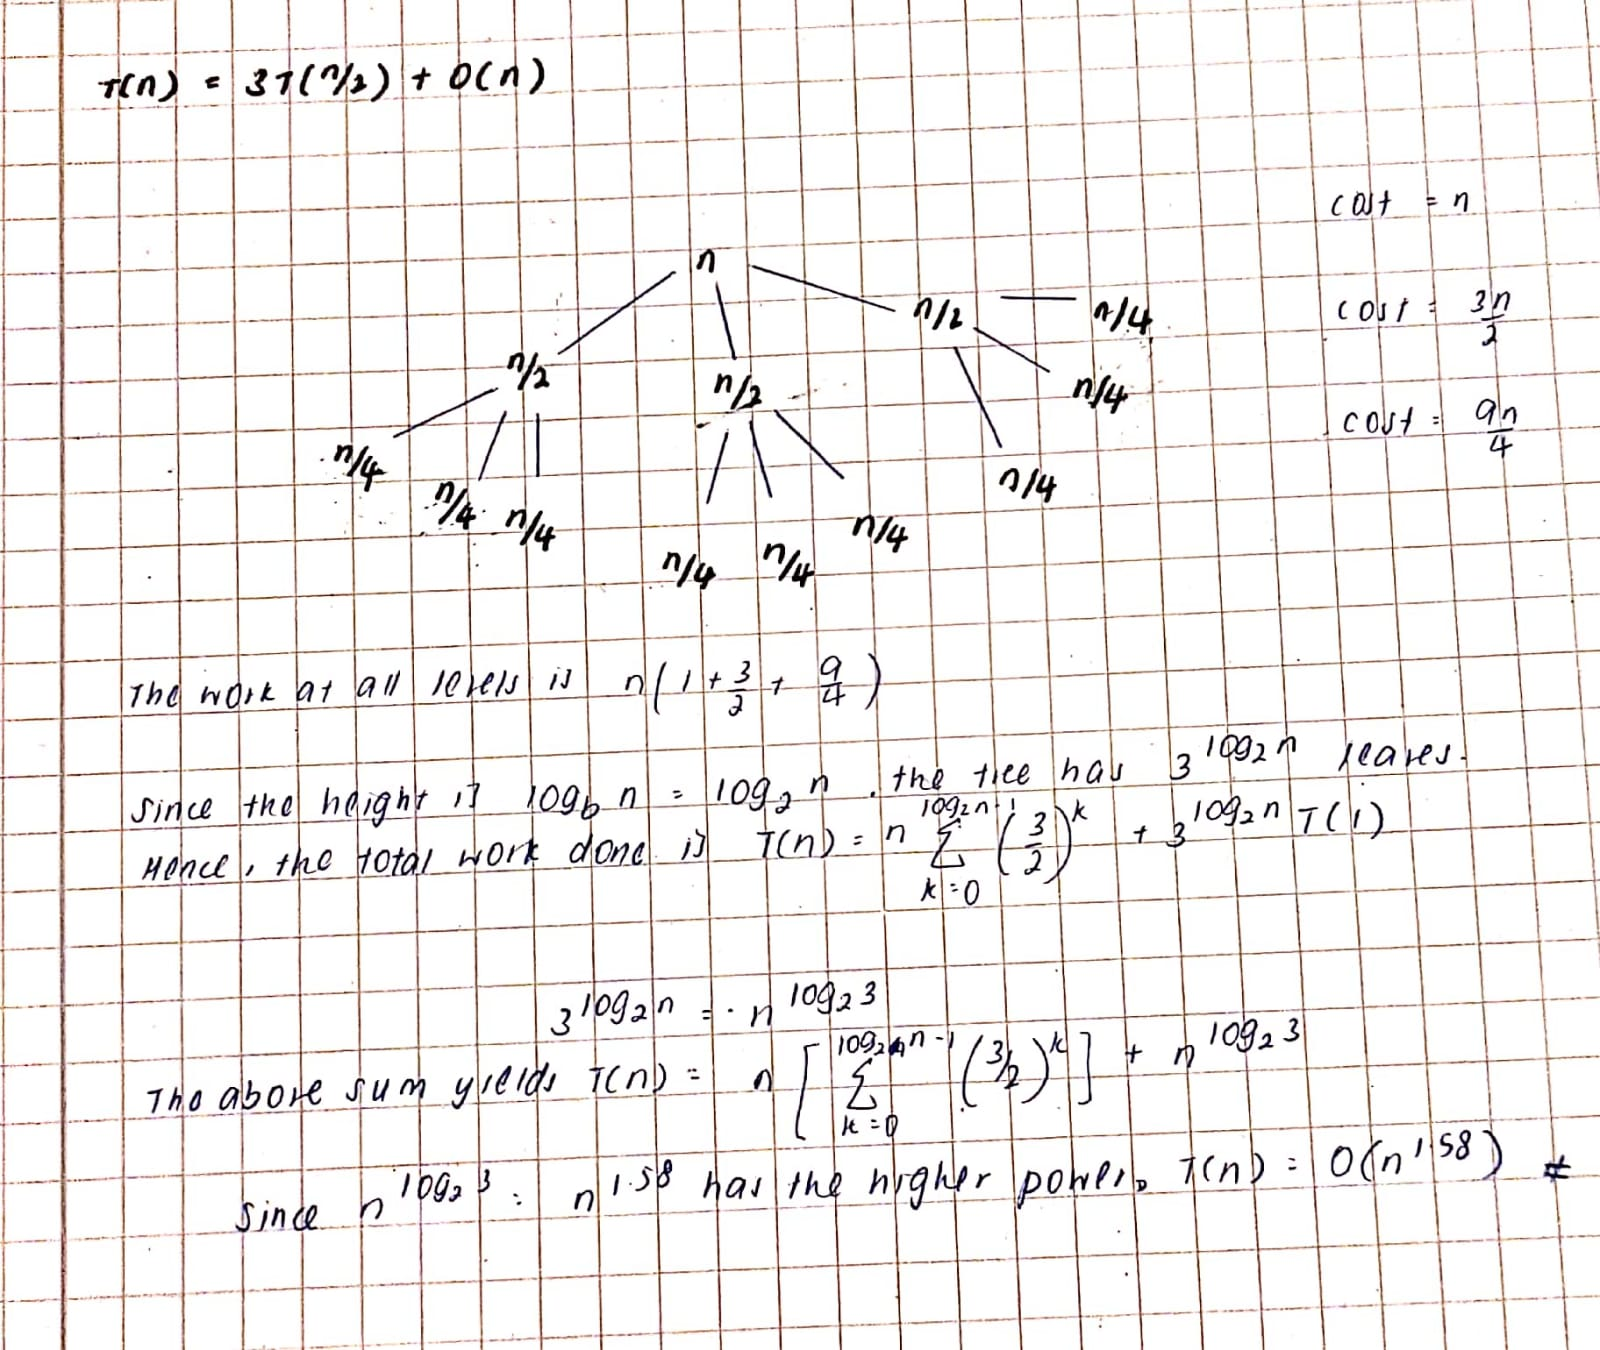 T(n) = 3T(n/2) + O(n)
cost = n
n
n/2 n/4
cost = 3n/2
n/2 n/2 n/4
cost = 9n/4
n/4 n/4 n/4 n/4 n/4 n/4 n/4
The work at all levels is n(1 + 3/2 + 9/4)
Since the height is log_b n = log_2 n, the tree has 3^{log_2 n} leaves.
Hence, the total work done is T(n) = n Σ_{k=0}^{log_2 n-1} (3/2)^k + 3^{log_2 n} T(1)
3^{log_2 n} = n^{log_2 3}
The above sum yields T(n) = n [Σ_{k=0}^{log_2 n-1} (3/2)^k] + n^{log_2 3}
Since n^{log_2 3} = n^{1.58} has the higher power, T(n) = O(n^{1.58}) #